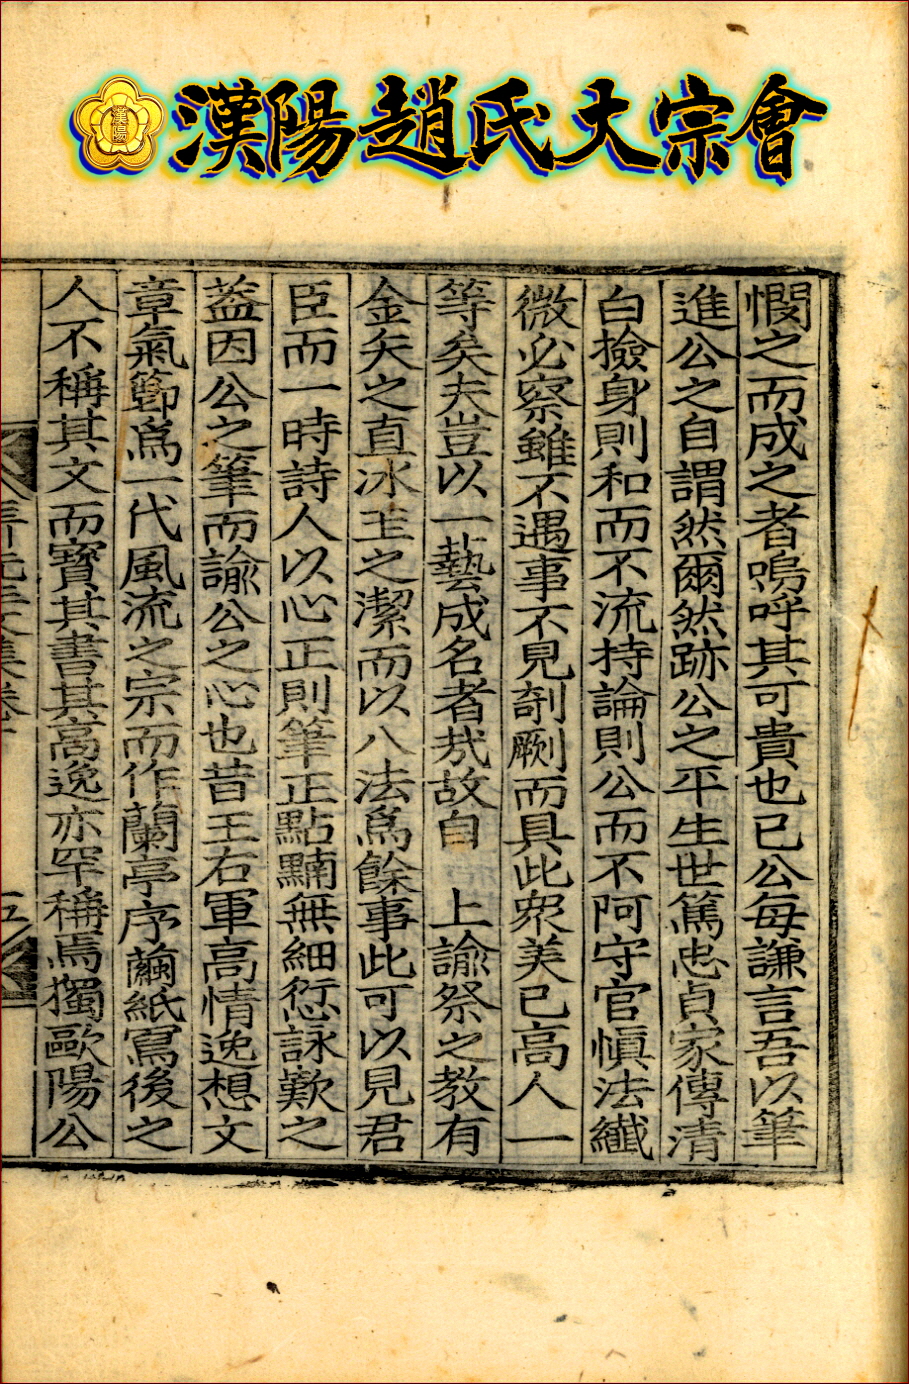 漢陽趙氏大宗會
漢陽
憫之而成之者嗚呼其可貴也已公每謙言吾以筆
進公之自謂然爾然跡公之平生世篤忠貞家傳清
白撿身則和而不流持論則公而不阿守官愼法纖
微必察雖不遇事不見剞劂而具此衆美已高人一
等矣夫豈以一藝成名者㢤故自 上諭祭之教有
金矢之直冰玉之潔而以八法爲餘事此可以見君
臣而一時詩人以心正則筆正點黼無細愆詠歎之
葢因公之筆而諭公之心也昔王右軍高情逸想文
章氣節爲一代風流之宗而作蘭亭序繭紙寫後之
人不稱其文而寶其書其高逸亦罕稱焉獨歐陽公